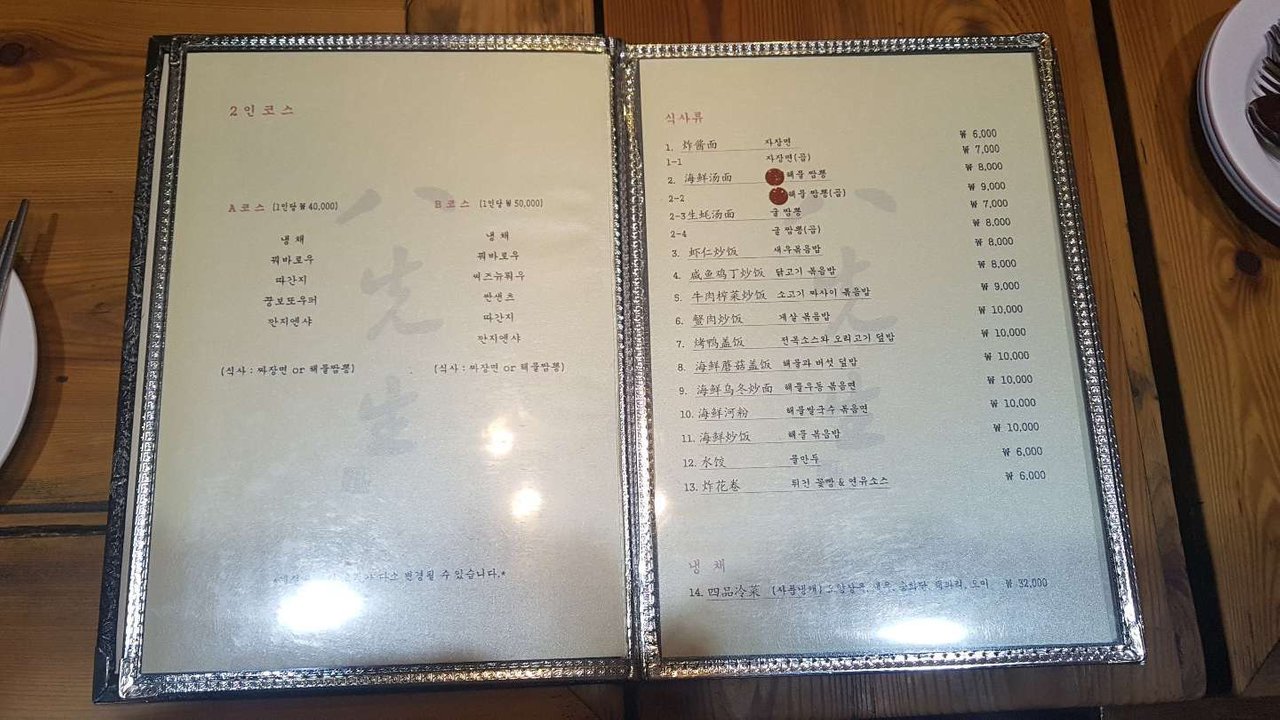 2인 코스
A 코스 (1인당 ₩ 40,000)
냉 채
꿔바로우
따간지
꿍보또우퍼
깐지엔샤
(식사 : 짜장면 or 해물짬뽕)
B 코스 (1인당 ₩ 50,000)
냉 채
꿔바로우
써즈뉴뤄우
짠샌츠
따간지
깐지엔샤
(식사 : 짜장면 or 해물짬뽕)
다소 변경될 수 있습니다.*
八先生
식사류
1. 炸酱面 자장면 ₩ 6,000
1-1 자장면(곱) ₩ 7,000
2. 海鲜汤面 해물 짬뽕 ₩ 8,000
2-2 해물 짬뽕(곱) ₩ 9,000
2-3 生蚝汤面 굴 짬뽕 ₩ 7,000
2-4 굴 짬뽕(곱) ₩ 8,000
3. 虾仁炒饭 새우볶음밥 ₩ 8,000
4. 咸鱼鸡丁炒饭 닭고기 볶음밥 ₩ 8,000
5. 牛肉榨菜炒饭 소고기 짜사이 볶음밥 ₩ 9,000
6. 蟹肉炒饭 게살 볶음밥 ₩ 10,000
7. 烤鸭盖饭 전복소스와 오리고기 덮밥 ₩ 10,000
8. 海鲜蘑菇盖饭 해물과 버섯 덮밥 ₩ 10,000
9. 海鲜乌冬炒面 해물우동 볶음면 ₩ 10,000
10. 海鲜河粉 해물쌀국수 볶음면 ₩ 10,000
11. 海鲜炒饭 해물 볶음밥 ₩ 10,000
12. 水饺 물만두 ₩ 6,000
13. 炸花卷 튀긴 꽃빵 & 연유소스 ₩ 6,000
냉 채
14. 四品冷菜 (사품냉채) ₩ 32,000